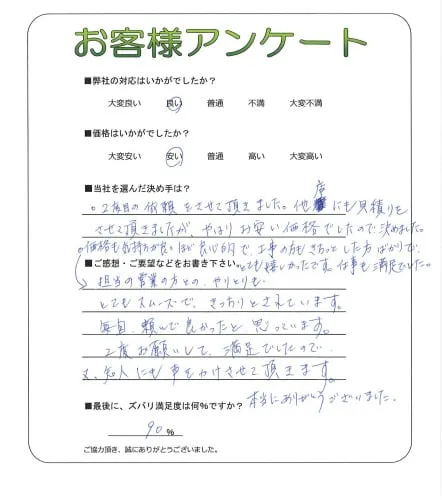 お客様アンケート
■弊社の対応はいかがでしたか?
大変良い 良い 普通 不満 大変不満
■価格はいかがでしたか?
大変安い 安い 普通 高い 大変高い
■当社を選んだ決め手は?
○2度目の依頼をさせて頂きました。他店にも見積りを
させて頂きましたが、やはりお安い価格でしたので決めました。
○価格も気持が良いほど良心的で、工事の方もきちっとした方ばかりで、
とても嬉しかったです。仕事も満足でした。
■ご感想・ご要望などをお書き下さい。
担当の営業の方との、やりとりも、
とてもスムーズで、きっちりとされています。
毎回、頼んで良かったと思っています。
2度お願いして、満足でしたので、
又、知人にも声をかけさせて頂きます。
本当にありがとうございました。
■最後に、ズバリ満足度は何%ですか?
90%
ご協力頂き、誠にありがとうございました。